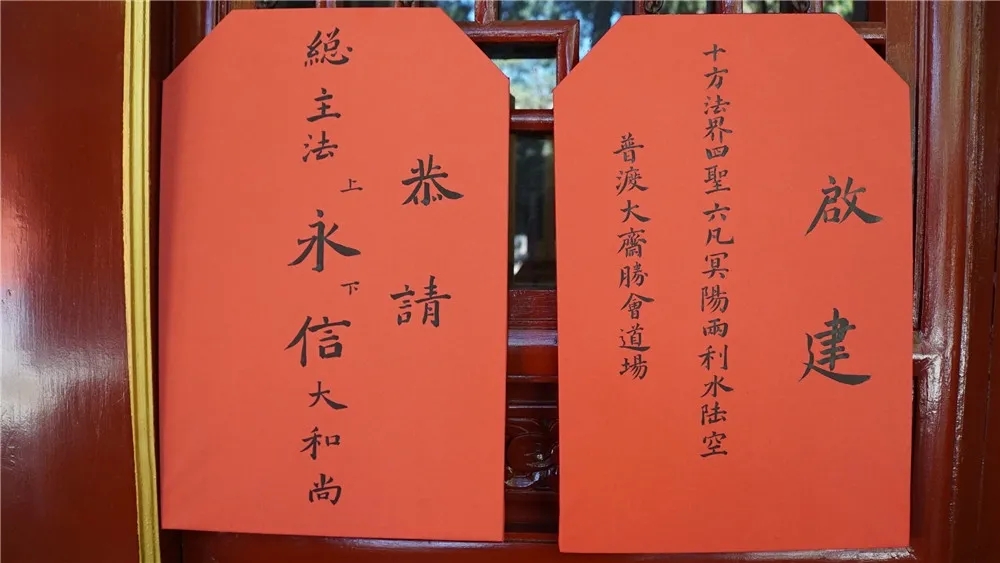 啟建
十方法界四聖六凡冥陽兩利水陆空
普渡大齋勝會道場
恭請
總主法上永下信大和尚